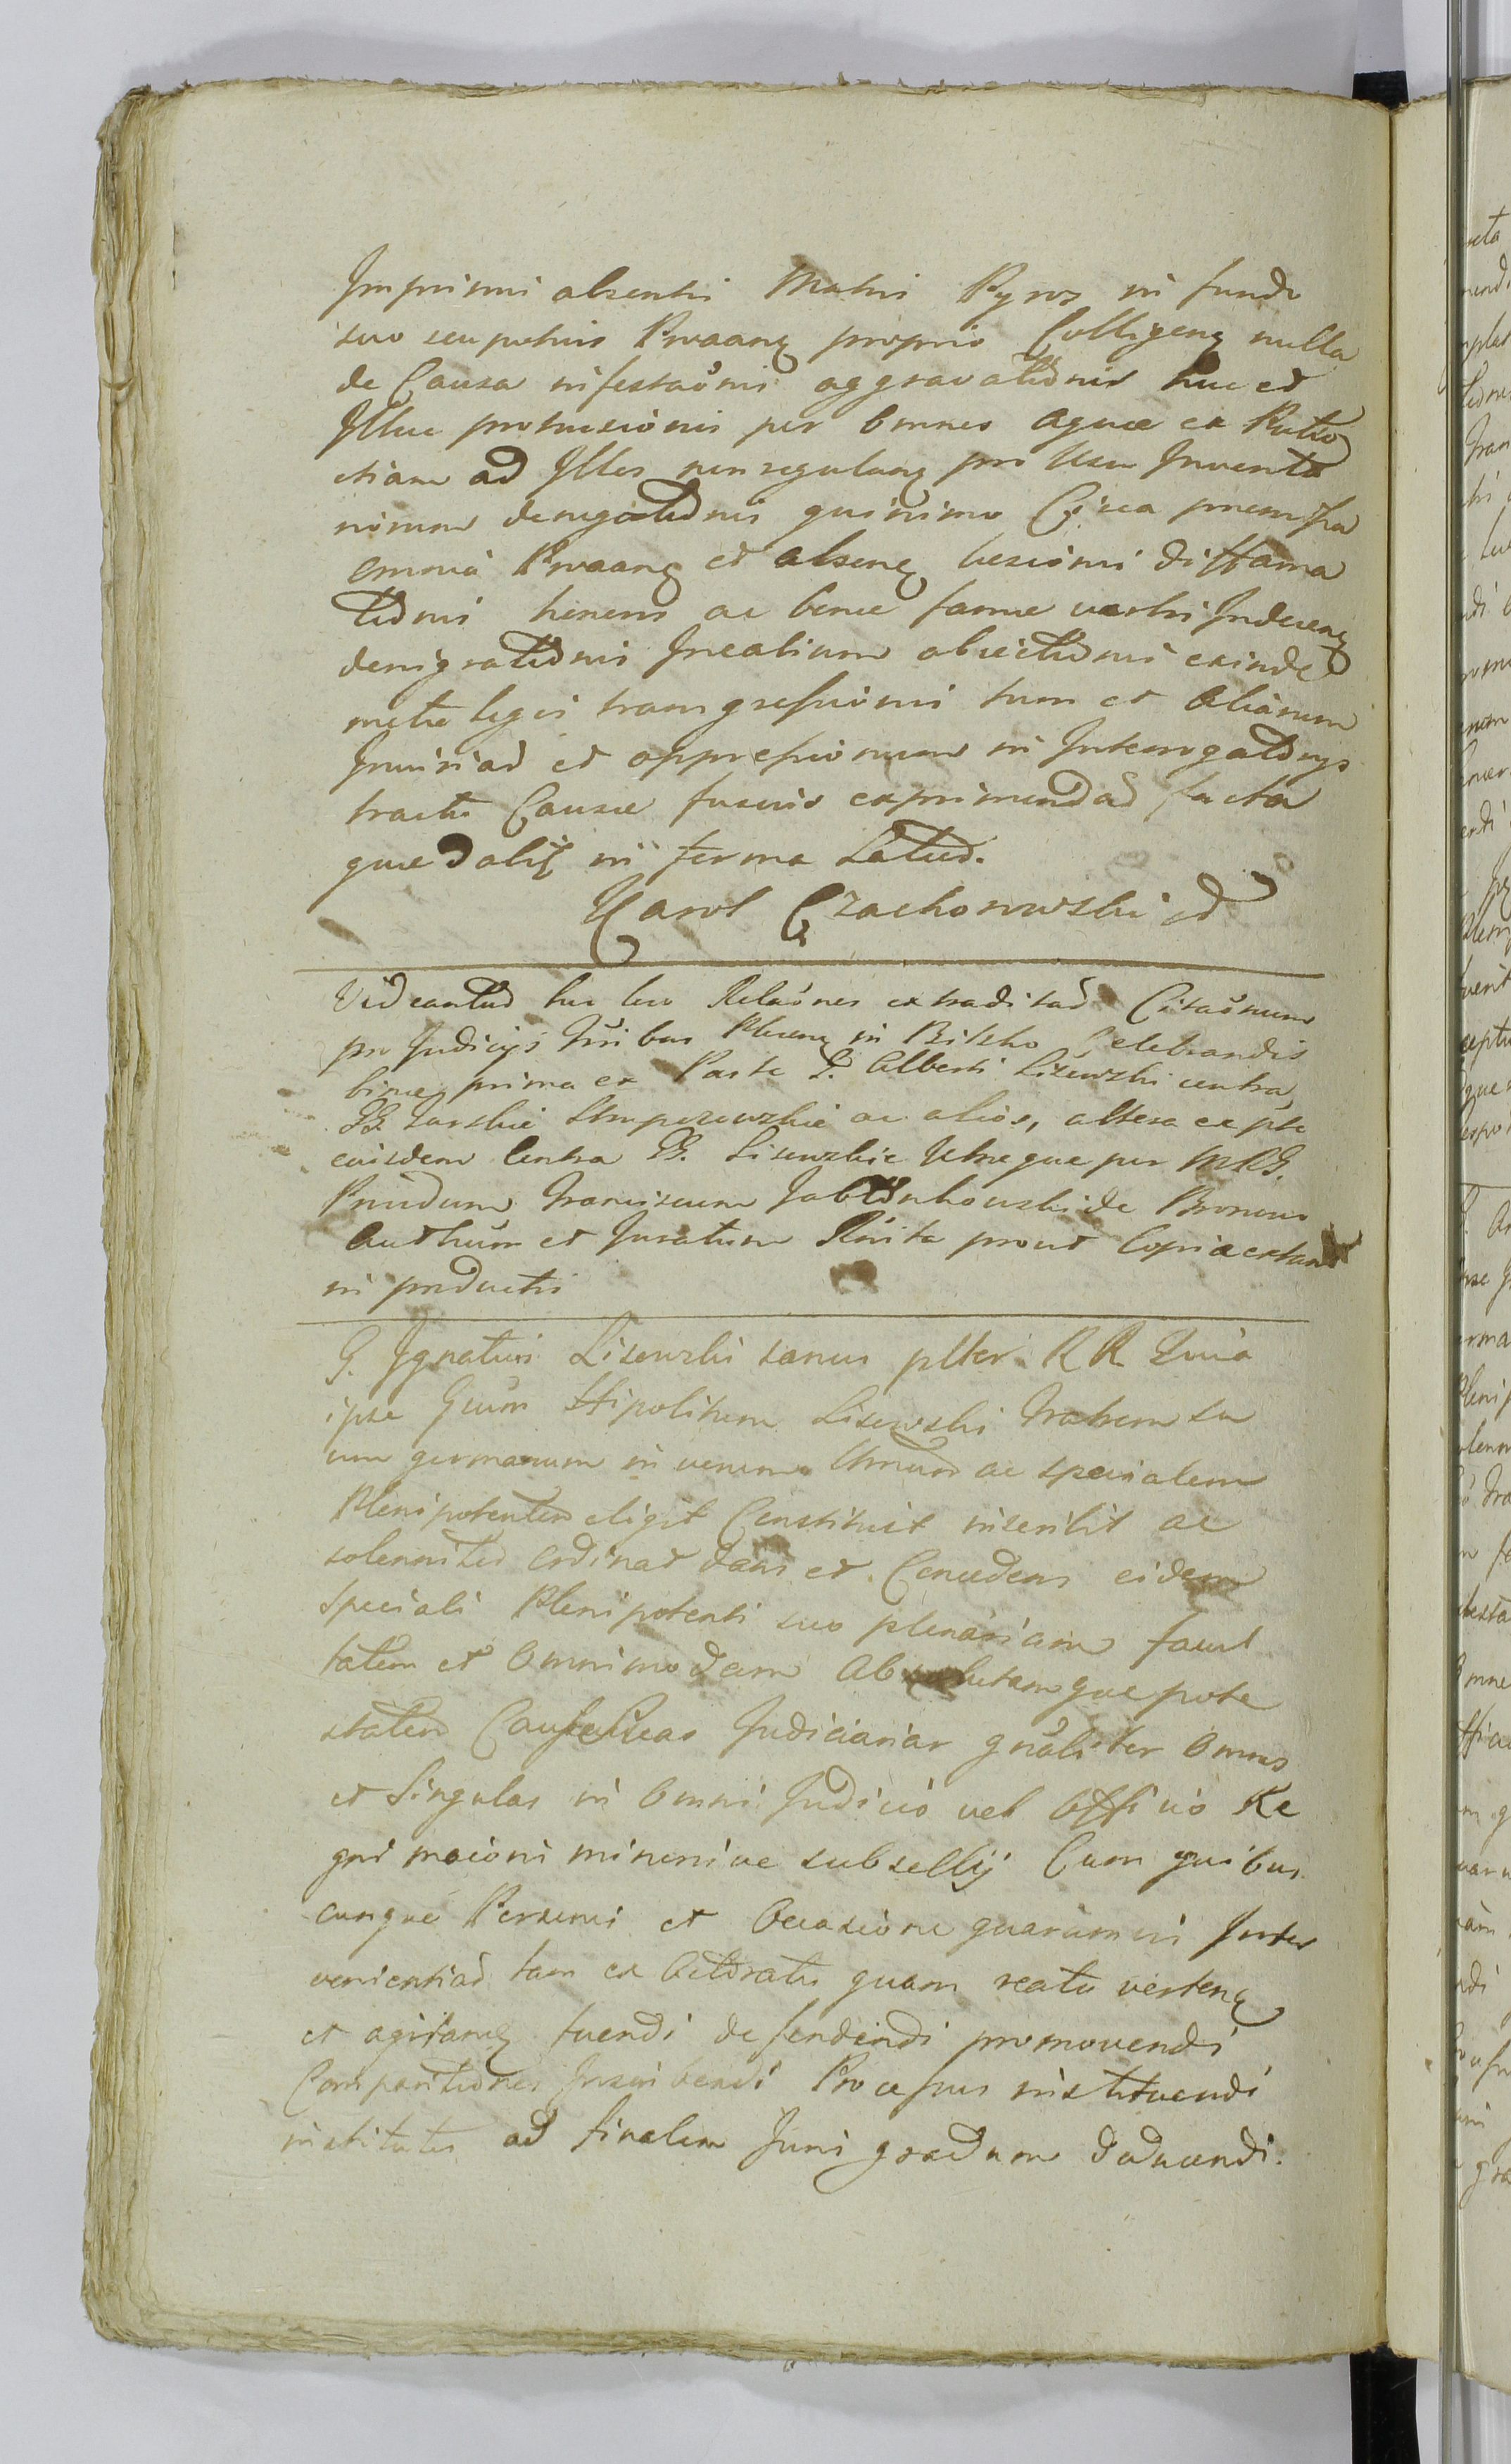 Imprimi absentis Matris Pyros in fundo
suo seu potius Proaang proprio Colligeng nulla
de Causa infestaōnis aggravationis huc et
Illuc protrusionis per omnes aquae ex Puteo
etiam ad Illos non regulang pro Usu Inventa
riorum denegationis quinimo Circa praemissa
omnia Proaang et abseng lesionis diffama
tionis honoris ac bonae famae vestri Indeceng
denigrationis Inealium obiectionis exinde
metae legis transgressionis tum et aliarum
Iniuriar et oppressionum in Interrogatorys
tractu Causae fusius exprimendar facta
quae Daliss in forma Latiod.
Karol Czachorowski
Videantur hic loco Relaōnes extraditar Citaōnum
pro Judicys Trribus Plocens in Bielsko Celebrandis
binae, prima ex Parte G. Alberti Lisewski contra
GG. Turskie Umpezewskie ac alios, altera ex pte
eiusdem Contra GG. Lisewskie Utraque per MRG.
Prudum Franciscum Jabłonkowski de Bronowo
Authum et Juratum Rnita prout Copiae extant
in productis
G. Ignatius Lisewski sanus plter RR Quia
ipse Gsum Hipolitum Lisewski Fratrem su
um germanum in verum Umum ac specialem
Plenipotentem eligit Constituit inscribit ac
solenniter ordinat dans et Concedens eidem
Speciali Plenipotenti suo plenariam facul
tatem et Omnimodam Absolutamque pote
statem Causas Suas Judiciarias gnāliter Omnes
et Singulas in Omni Judicio vel Officio Re
gni maioris minorisve subsellij Cum quibus
cunque Personis et Occasione quarumvis Inter
venientiar tam ex Actoratu quam reatu verteng
et agitang tuendi defendendi promovendi
Comparitiones Inscribendi Processus instituendi
institutos ad finalem Juris gradum deducendi.